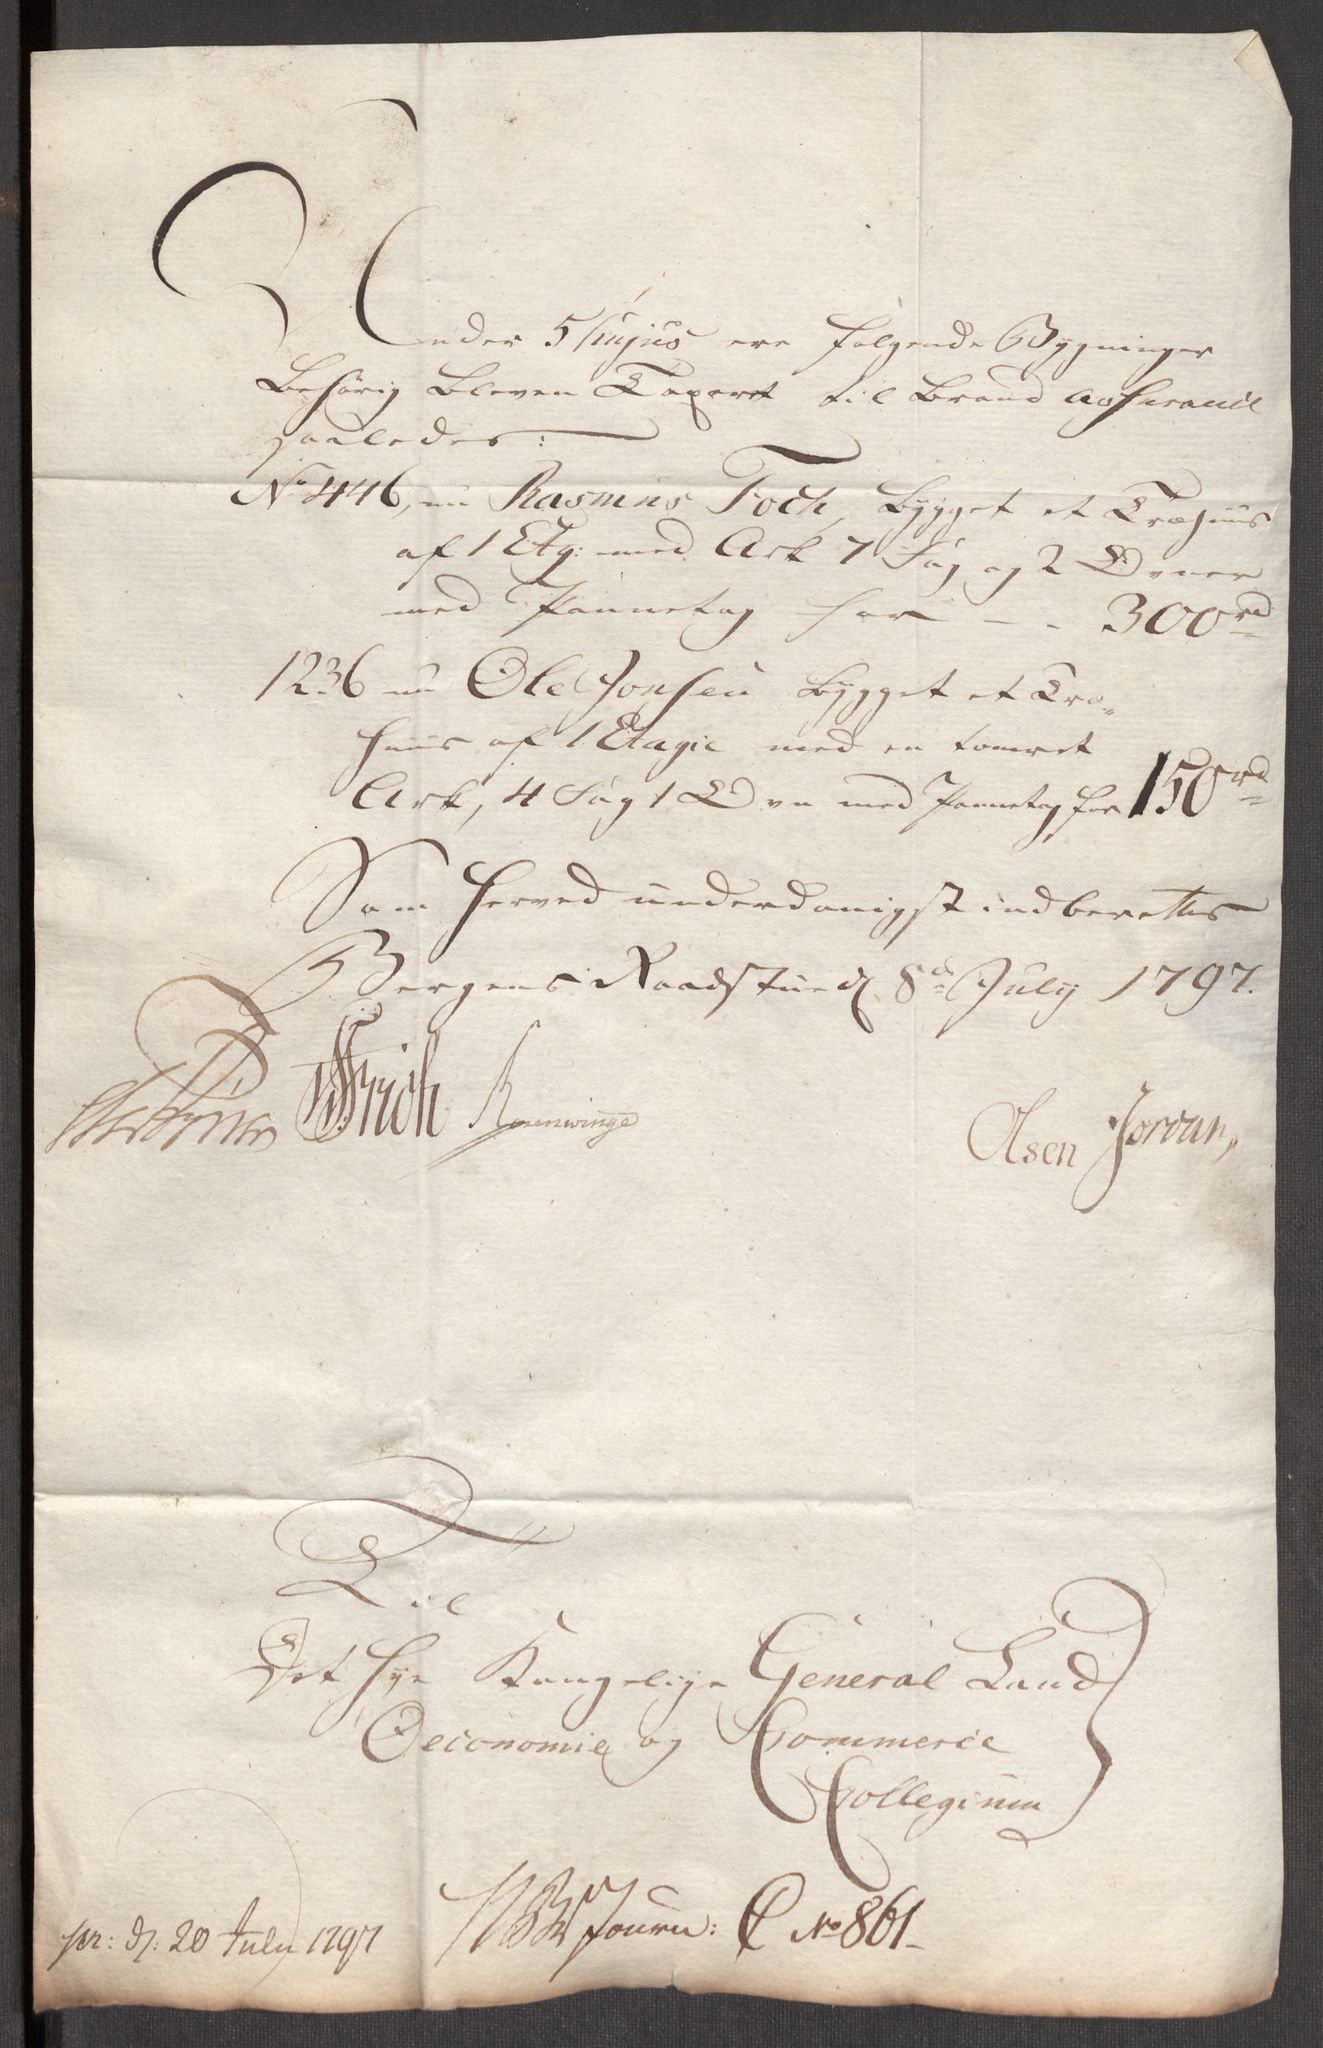 Under 5 hujus ere følgende Bygninger
behörig bleven Taxeret til Brand Assurance
saaledes:
No 446, nu Rasmus Foch, bygget et Træhuus
af 1 Etg: med Ark 7 Fag og 2 Ovner
med Pannetag for - - 300 rd
1236 nu Ole Jonsen bygget et Træ-
huus af 1 Etagie med en tomret
Ark, 4 Fag 1 Ovn med Pannetag for 150 rd
Som herved underdanigst indberettes
Bergens Raadstue d. 8de July 1797.
Frich Rosenwinge
Olsen
Til
Det høye Kongelige General Land
Oeconomie og Commerce
Collegium
pr: d: 20 July 1797 Journ: C No 861